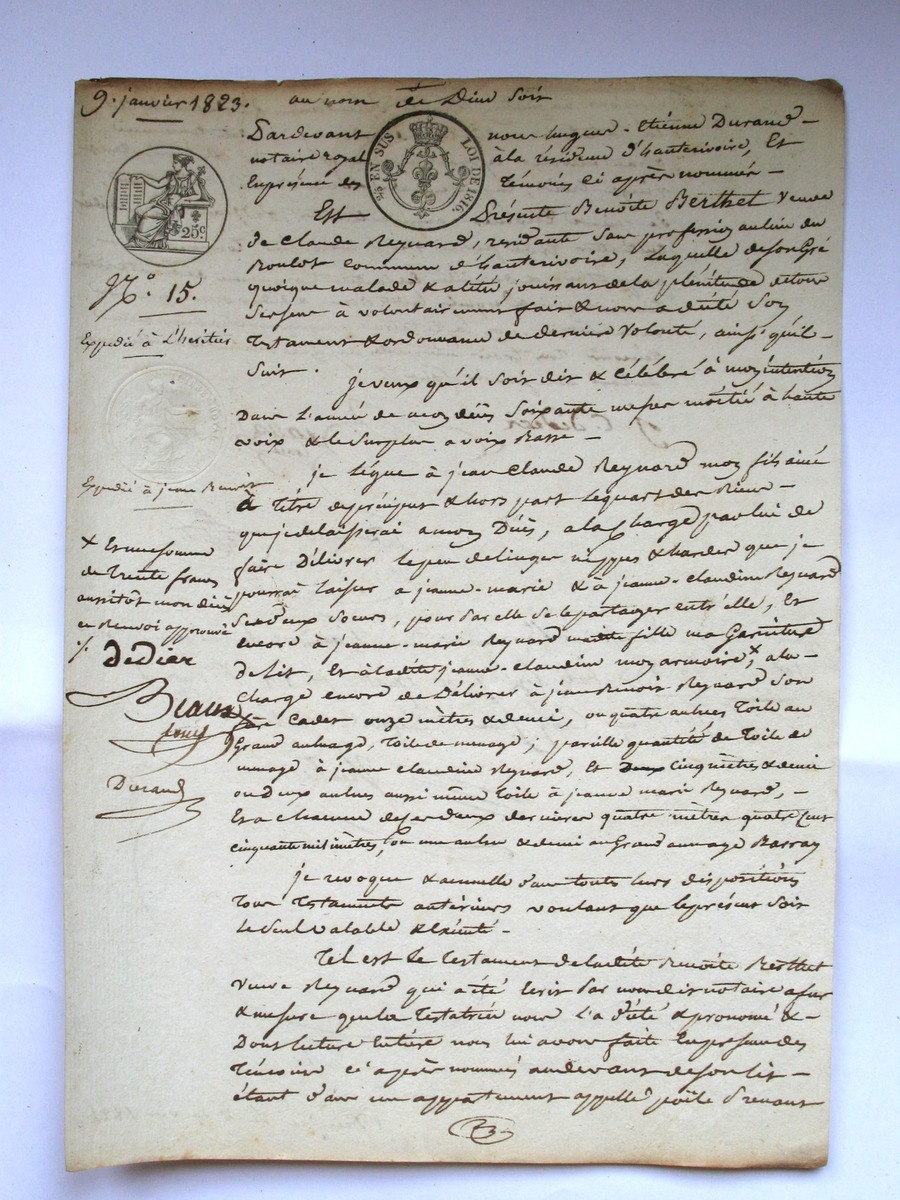 9. janvier 1823. au nom de Dieu soit
Pardevant nous hugue-Etienne Durand-
notaire royal à la résidence d'hauterivoire, Et
En présence des Témoins ci après nommés-
Est Présente Benoite Berthet veuve
de Claude Reynard, residante sans profession au lieu du
Boulot commune d'hauterivoire, Laquelle de son Gré
quoique malade & alitée jouissant de la plénitude de tous
ses sens à volontairement fait & nous a dicté son
Testament & ordonnance de dernière volonté, ainsi qu'il
suit.
je veux qu'il soit dit & Célébré à mon intention
Dans L'année de mon décès soixante messes moitié à haute
voix & le surplus a voix Basse-
je Lègue à jean Claude Reynard mon fils ainé
à Titre de préciput & hors part le quart des Biens-
que je delaisserai a mon Décès, a la Charge par lui de
faire Délivrer le peu de linges nippes & hardes que je
pourrai laisser a jeanne-marie & à jeanne-Claudine Reynard
Ses deux Soeurs, pour par elle se le partager entr'elle, Et
encore à jeanne-marie Reynard madite fille ma Garniture
de lit, Et à ladite jeanne-claudine mon armoire,x a la
Charge encore de Délivrer à jean Benoit Reynard son
frère Cadet onze mètres & demi, ou quatre aulnes Toile au
Grand aulnage, Toile de menage; pareille quantité de Toile de
menage à jeanne Claudine Reynard, Et Cinq mètres & demi
ou Deux aulnes aussi même Toile à jeanne marie Reynard,-
Et a Chacune de ses deux dernières quatre mètres quatre Cent
cinquante milimètres, ou une aulne & demi au Grand aunage
je revoque & annulle dans toutes leurs dispositions
Tous Testaments antérieurs voulant que le présent soit
le Seul valable & Exécuté-
Tel est le Testament de ladite Benoite Berthet
veuve Reynard qui a été Ecrit par nous dit notaire a fur
& mesure que la Testatrice nous l'a dicté & prononcé &-
Dont lecture Entière nous lui avons faite En présence des
Témoins ci après nommés au devant de son lit-
étant dans un appartement appellé poële Prenant
2/5 EN SUS LOI DE 1816.
25c
No. 15.
Expedié à L'héritier
Expedié à jean Benoit
x Et une somme
de Trente francs
aussitôt mon décès
ce Renvoi approuvé
./. Dedier
Durand